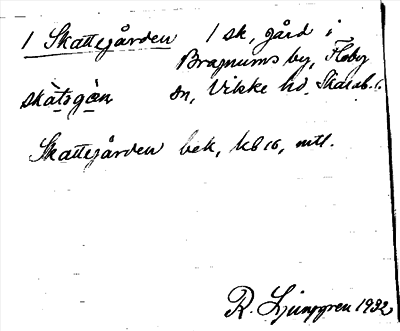 1 Skattegården 1 sk, gård i
Bragnums by, Floby
skàtsgàn sn, Vilske hd, Skarab. l.
Skattegården bek, KB 16, mtl.
R. Ljunggren 1932